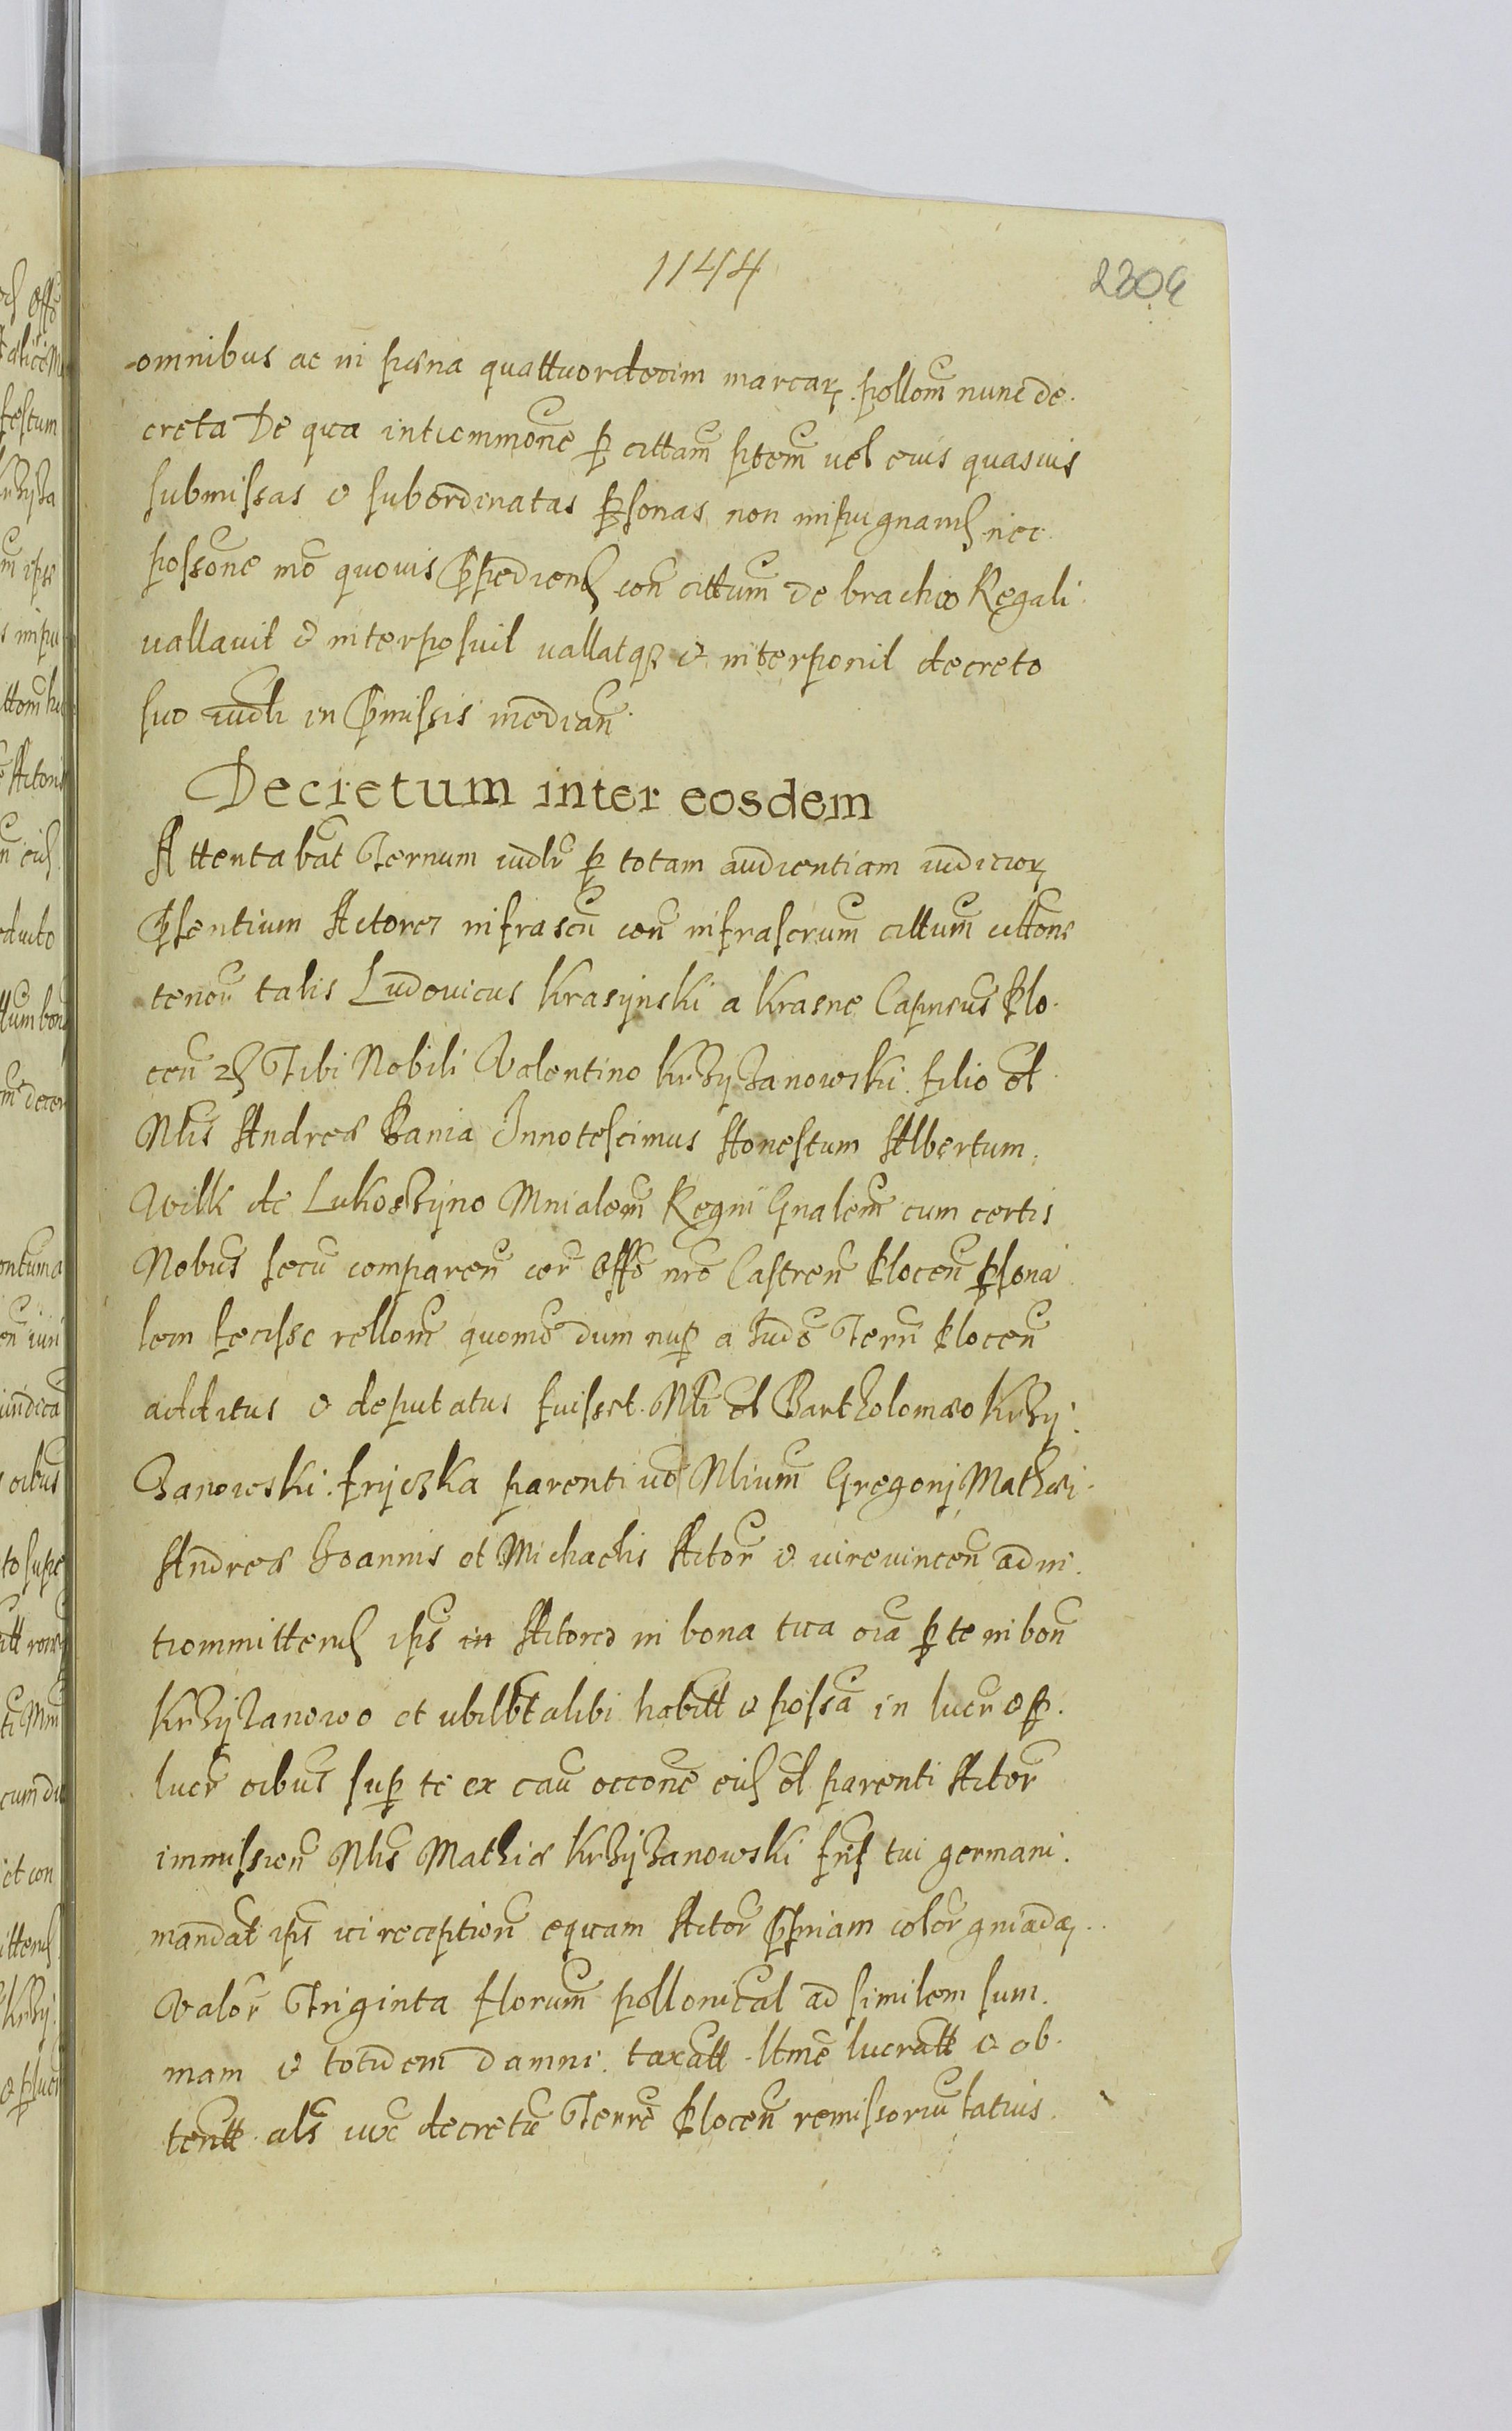 1144
omnibus ac in pæna quattuordecim marcar pollom nunc de
creta De qua intrommone p cittam ptem uel eius quasuis
submissas et subordinatas psonas non impugnand nec
possone mo quouis ppediend con cittum de brachio Regali
uallauit et interposuit uallatq et interponit decreto
suo iudli in pmissis median
Decretum inter eosdem
Attentabat Ternum iudle p totam audientiam iudicior
psentium Actores infrascr con infrascrum cittum cittone
tenor talis Ludouicus Krasynski a Krasne Capneus Plo
cen Tibi Nobili Valentino Krzyzanowski filio ol
Nlis Andreæ Bania Innotescimus Honestum Albertum
Wilk de Lukoszyno Mnialem Regni Gnalem cum certis
Nobus secu comparen cor Offo nro Castren Plocen psona
lem fecisse rellone quomo dum nup a Judo Terri Plocen
additus et deputatus fuisset Nli ol Bartholomæo Krzy
zanowski fryczka parenti uo Nlium Gregorij Mathæi
Andreæ Joannis et Michaelis Actor et uireuincen ad in
trommittend ips Actores in bona tua oia p te in bon
Krzyzanowo et ubilbt alibi habitt et possa in lucr et p
lucr oibus sup te ex cau occone eius ol parenti Actor
immission Nlis Mathiæ Krzyzanowski fris tui germani
mandat ips ui reception equam Actor ppriam color gniada
Valor Triginta florum pollonical ad similem sum
mam et totidem damni taxatt ltme lucratt et ob
tentt als iuxe decretu Terre Plocen remissoriu latius